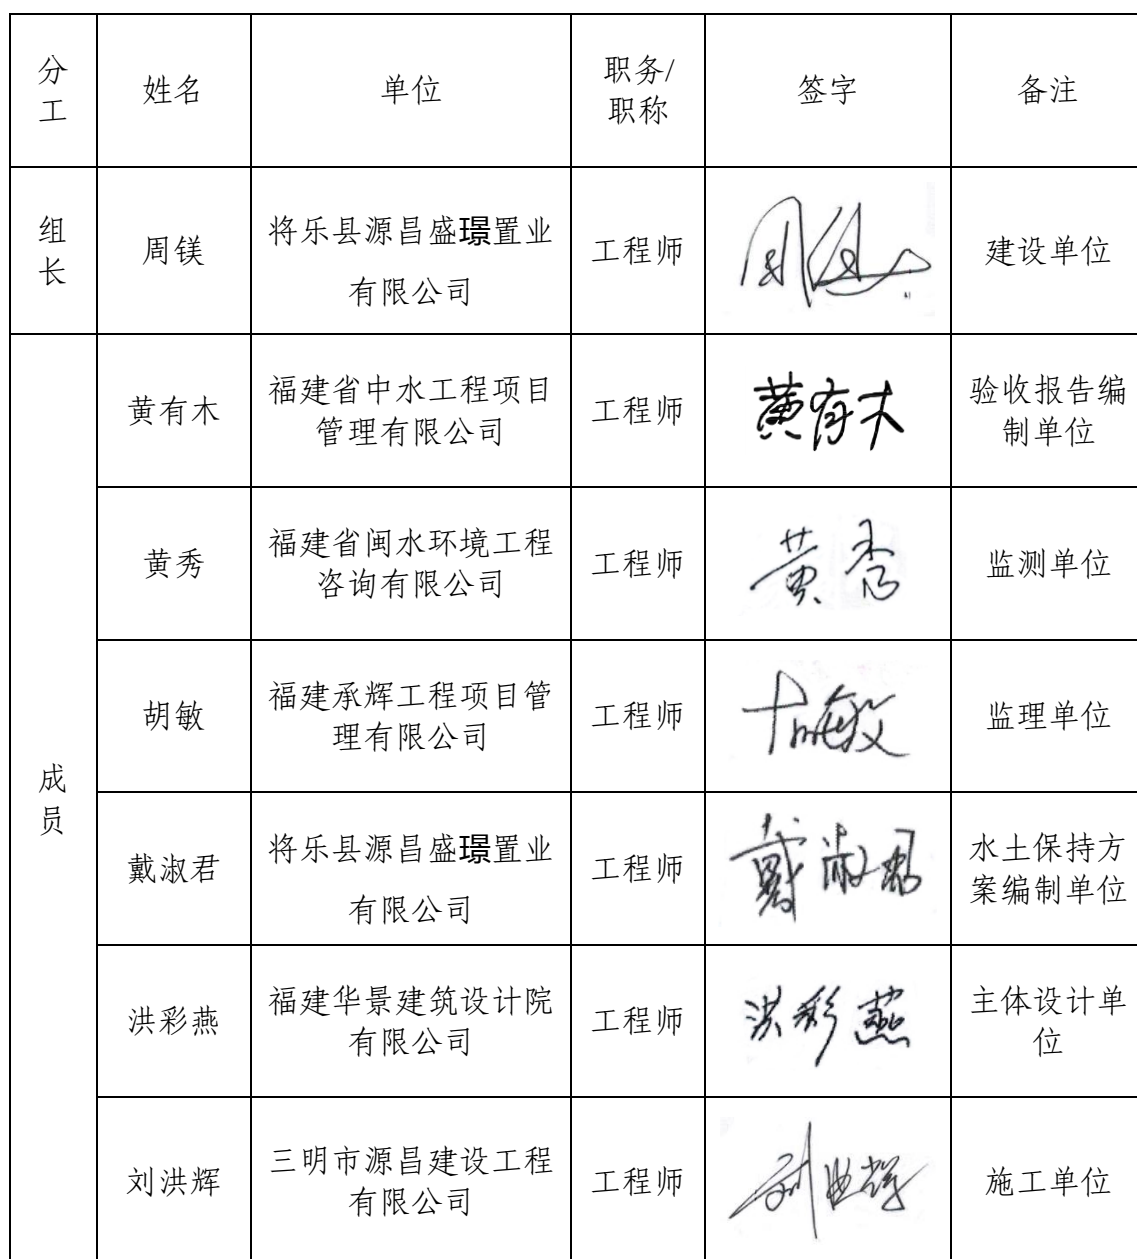 分
工
姓名
单位
职务/
职称
签字
备注
组
长
周镁
将乐县源昌盛璟置业
有限公司
工程师
建设单位
成
员
黄有木
福建省中水工程项目
管理有限公司
工程师
黄有木
验收报告编
制单位
黄秀
福建省闽水环境工程
咨询有限公司
工程师
黄秀
监测单位
胡敏
福建承辉工程项目管
理有限公司
工程师
胡敏
监理单位
戴淑君
将乐县源昌盛璟置业
有限公司
工程师
戴淑君
水土保持方
案编制单位
洪彩燕
福建华景建筑设计院
有限公司
工程师
洪彩燕
主体设计单
位
刘洪辉
三明市源昌建设工程
有限公司
工程师
施工单位